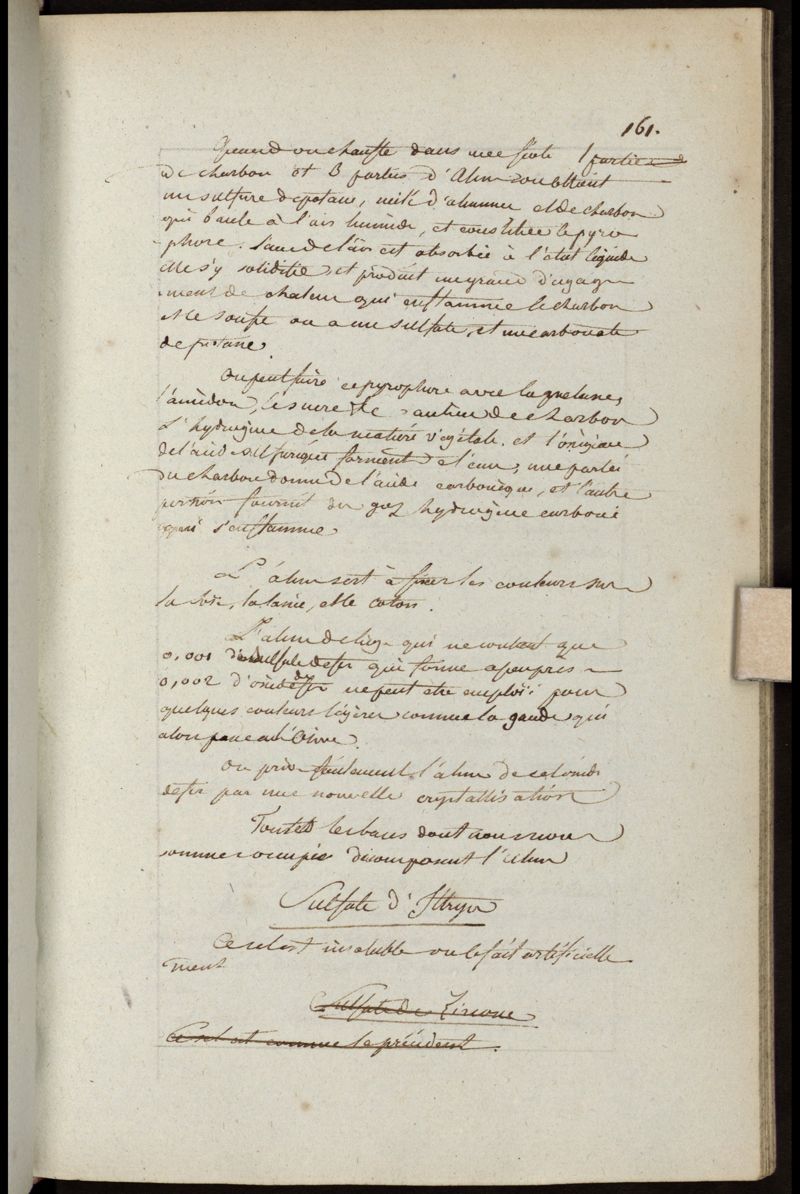 161.
Quand on chauffe dans une fiole 1 partie
de charbon et 3 parties d'Alun on obtient
un sulfure de potasse, mêlé d'alumine et de charbon
qui brule à l'air humide, et constitue le pyro
phore. L'eau de l'air est absorbée à l'état liquide
elle s'y solidifie et produit un grand dégage
ment de chaleur qui enflamme le charbon
et le soufre on a un sulfate, et un carbonate
de potasse.
On peut faire ce pyrophore avec la
l'amidon, le sucre et le au lieu de charbon
L'hydrogène de la matière végétale et l'oxigène
de l'acide sulfurique forment de l'eau, une partie
du charbon donne de l'acide carbonique, et l'autre
portion fournit du gaz hydrogène carboné
qui s'enflamme
L'alun sert à fixer les couleurs sur
la soie, la laine, et le coton.
L'alun de liège qui ne contient que
0,001 de sulfate de fer qui forme apeuprès
0,002 d'oxide de fer ne peut être emploié pour
quelques couleurs légères comme la gaude qui
alors passe à l'olive.
On prive facilement l'alun de cet oxide
de fer par une nouvelle crystallisation
Toutes les bases dont nous nous
sommes occupés décomposent l'Alun
Sulfate d'Ittrya
Ce sel est insoluble on le fait artificielle
ment
Sulfate de Zircone
Ce sel est comme le précédent.